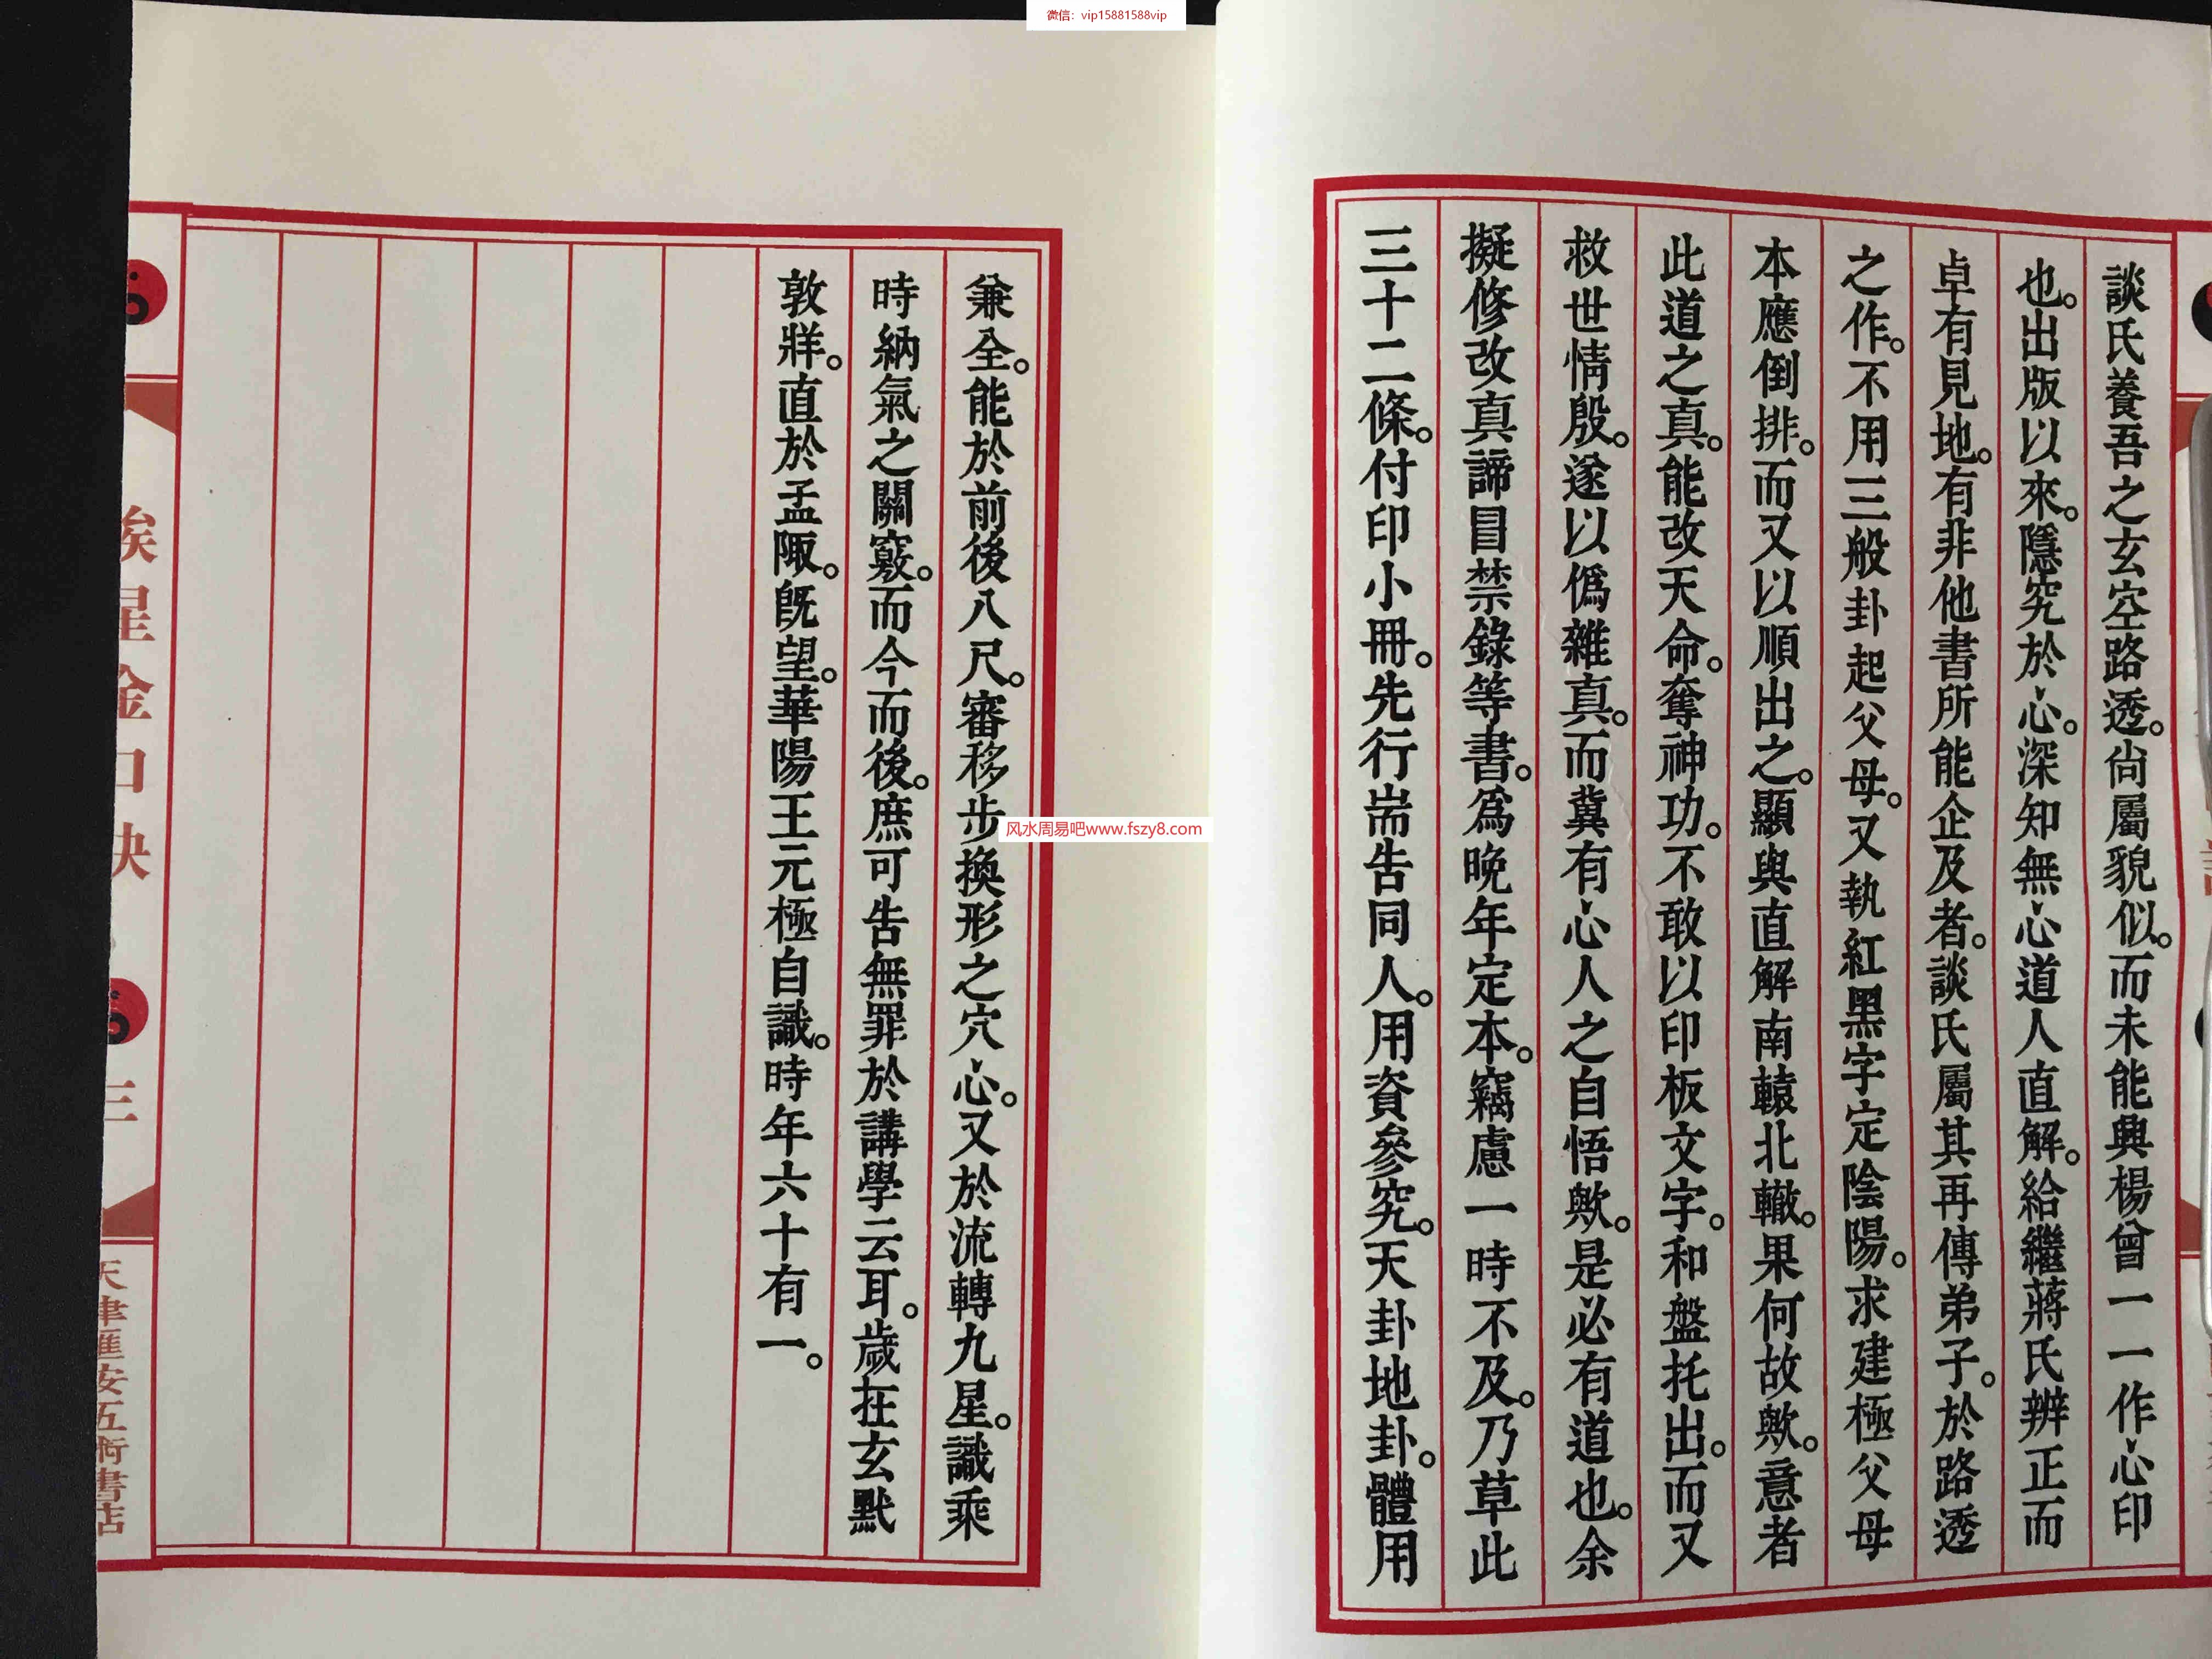 微信：vip15881588vip
談氏養吾之玄空路透。尙屬貌似。而未能與楊曾一一作心印
也。出版以來。隱究於心。深知無心道人直解。給繼蔣氏辨正而
卓有見地。有非他書所能企及者。談氏屬其再傳弟子。於路透
之作。不用三般卦起父母。又執紅黑字定陰陽。求建極父母
本應倒排。而又以順出之。顯與直解南轅北轍。果何故歟。意者
此道之真。能改天命。奪神功。不敢以印板文字。和盤托出。而又
救世情殷。遂以僞雜真。而冀有心人之自悟歟。是必有道也。余
擬修改真諦目禁錄等書。爲晚年定本。竊慮一時不及。乃草此
三十二條。付印小冊。先行耑告同人。用資參究。天卦地卦。體用
兼全。能於前後八尺。審移步換形之穴心。又於流轉九星。識乘
時納氣之關竅。而今而後。庶可告無罪於講學云耳。歲在玄黓
敦牂。直於孟陬。既望。華陽王元極自識。時年六十有一。
挨星金口訣
三
天津匯安五術書店
风水周易吧www.fszy8.com